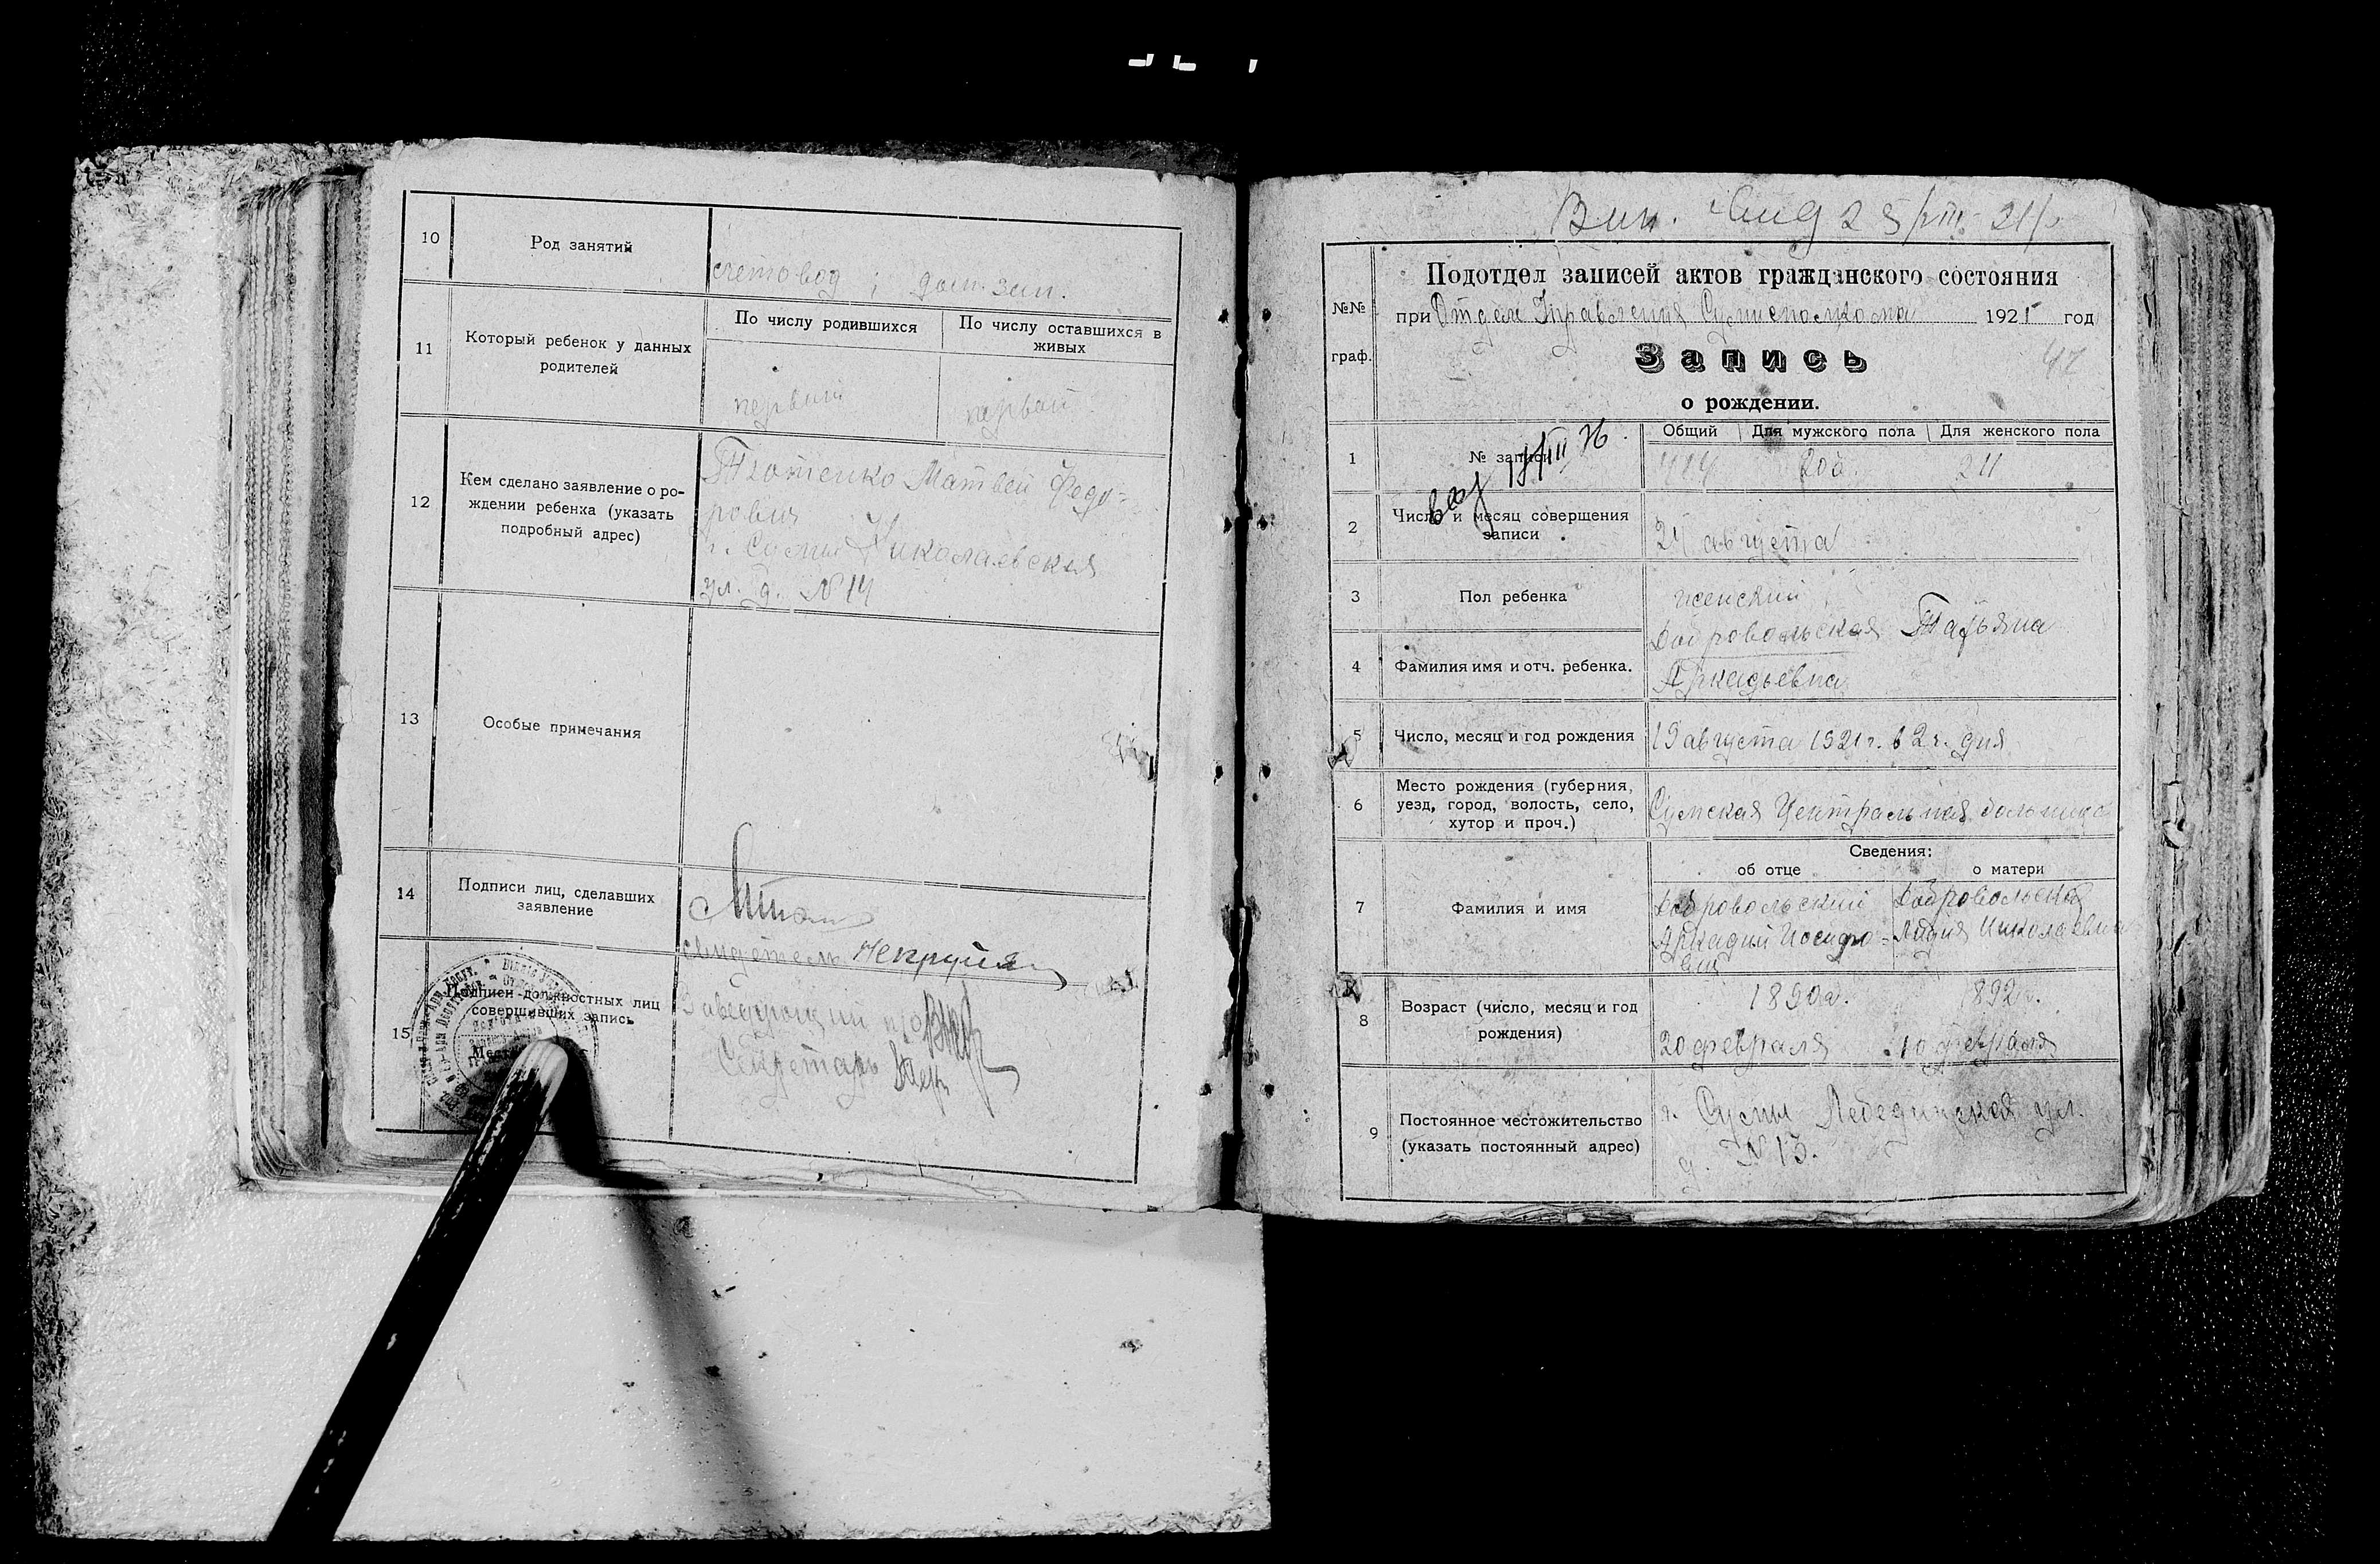 10
Род занятий
счетовод ; дом. зан.
11
Который ребенок у данных
родителей
По числу родившихся
По числу оставшихся в
живых
первый
первый
12
Кем сделано заявление о ро-
ждении ребенка (указать
подробный адрес)
Матвей Федо-
рович
г. Сумы Николаевская
ул. д. №14
13
Особые примечания
14
Подписи лиц, сделавших
заявление
свидетель
15
Подписи должностных лиц
совершивших запись
Заведующий
Секретарь
Подотдел записей актов гражданского состояния
№№
граф.
при Отделе Управления Сумисполкома 1921 год
47
Запись
о рождении.
1
№ записи
Общий
Для мужского пола
Для женского пола
211
2
Число и месяц совершения
записи
24 августа
3
Пол ребенка
женский
4
Фамилия имя и отч. ребенка.
Добровольская Татьяна
Аркадьевна
5
Число, месяц и год рождения
19 августа 1921 г. в 2 ч. дня
6
Место рождения (губерния,
уезд, город, волость, село,
хутор и проч.)
Сумская Центральная больница
Сведения:
об отце
о матери
7
Фамилия и имя
Добровольский
Аркадий Иосифо-
вич
Добровольская
Лидия Николаевна
8
Возраст (число, месяц и год
рождения)
1890 г.
20 февраля
1892 г.
10 февраля
9
Постоянное местожительство
(указать постоянный адрес)
г. Сумы Лебединская ул.
д. №13.